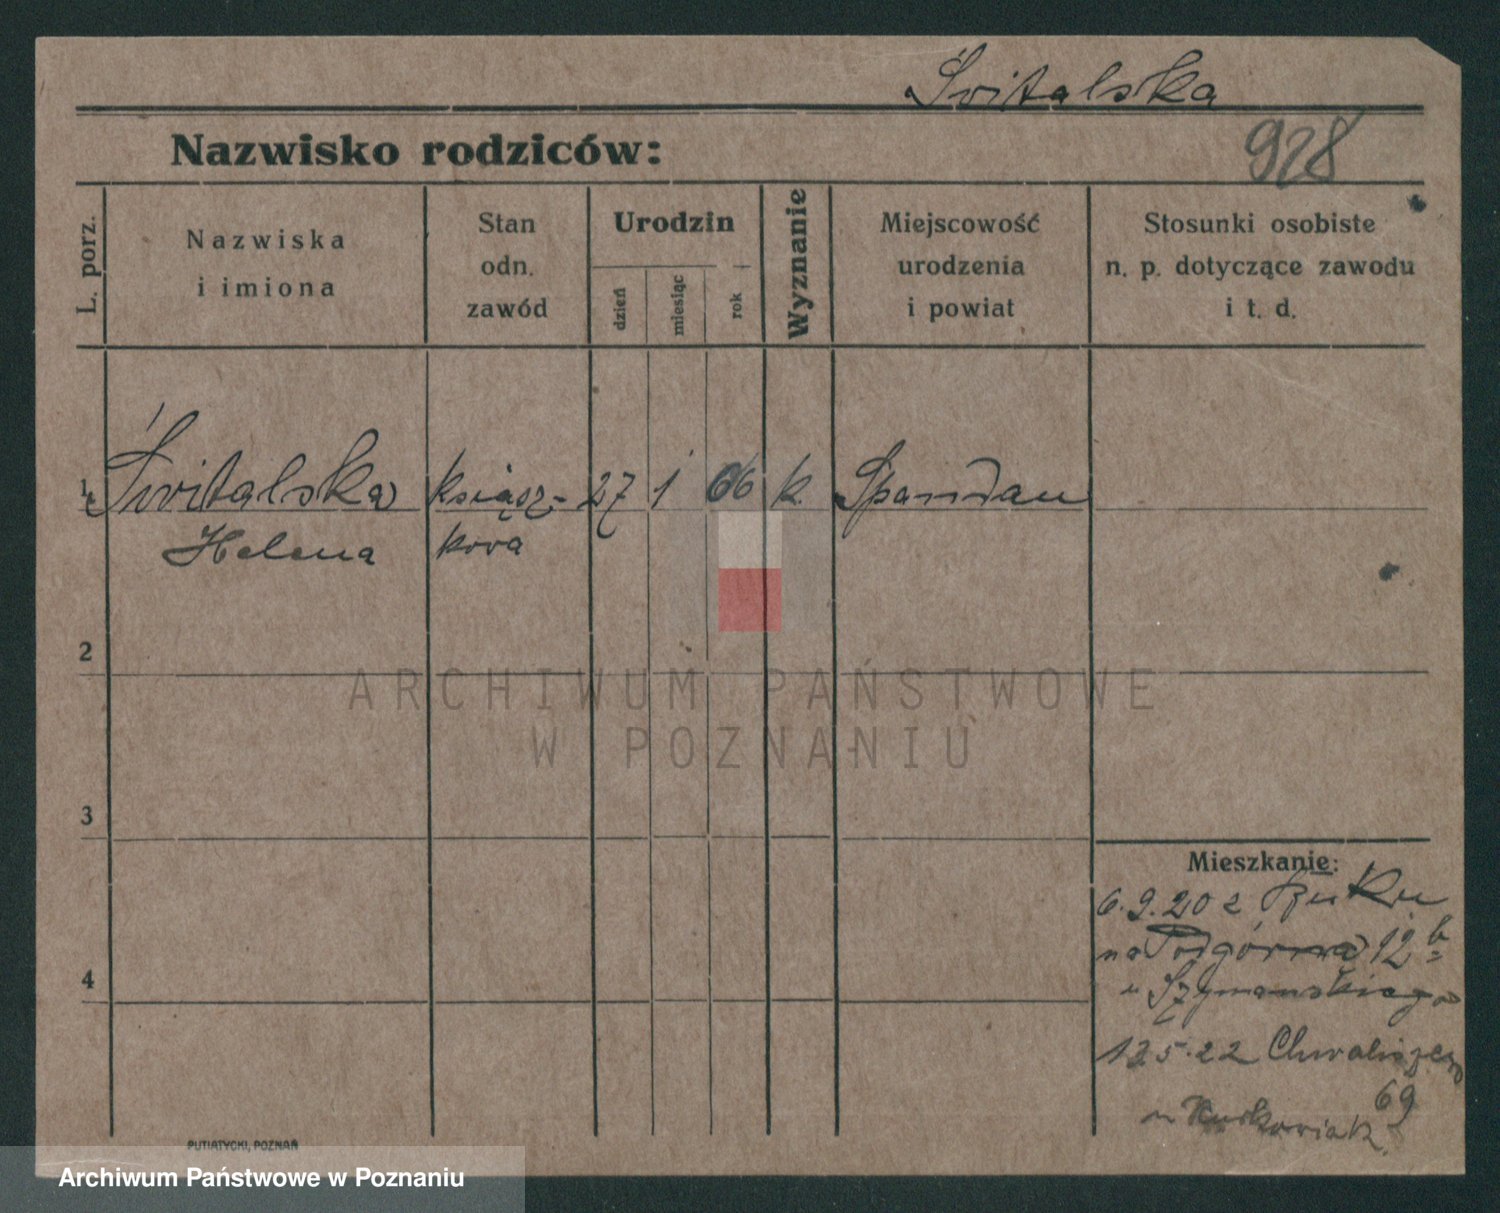 Świtalska
Nazwisko rodziców:
928
L. porz.
Nazwiska
i imiona
Stan
odn.
zawód
Urodzin
dzień
miesiąc
rok
Wyznanie
Miejscowość
urodzenia
i powiat
Stosunki osobiste
n. p. dotyczące zawodu
i t. d.
1 Świtalska książ- 27 1 66 k. Spandau
Helena kova
2
ARCHIWUM PAŃSTWOWE
W POZNANIU
3
Mieszkanie:
6.9.20 z Buku
na Podgórna 12 b
u Szymańskiego
4
12.5.22 Chwaliszewo
69
u Kurkowiak.
PUTIATYCKI, POZNAŃ
Archiwum Państwowe w Poznaniu